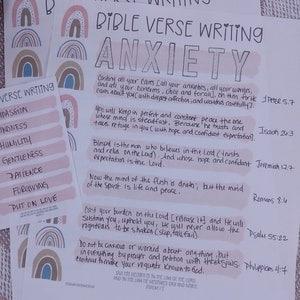 BIBLE VERSE WRITING
ANXIETY
Casting all your cares [all your anxieties, all your worries,
and all your concerns, once and for all] on Him, for He
cares about you with deepest affection, and watches
1 Peter 5:7
You will keep in perfect and constant peace the one
whose mind is steadfast, Because he trusts and
takes refuge in You with hope and confident expectation.
Isaiah 26:3
Blessed is the man who believes in the Lord (trusts
and relies on the Lord) And whose hope and confident
expectation is the Lord.
Jeremiah 17:7
Now the mind of the flesh is death, but the mind
of the Spirit is life and peace.
Romans 8:6
Cast your burden on the Lord [release it] and He will
sustain you, uphold you; He will never allow the
righteous to be shaken (slip, fall, fail).
Psalm 55:22
Do not be anxious or worried about anything, but
in everything by prayer and petition with thanksgiving,
continue to make your requests known to God.
Philippians 4:7
VERSE WRITING
COMPASSION
KINDNESS
HUMILITY
GENTLENESS
PATIENCE
FORGIVING
PUT ON LOVE